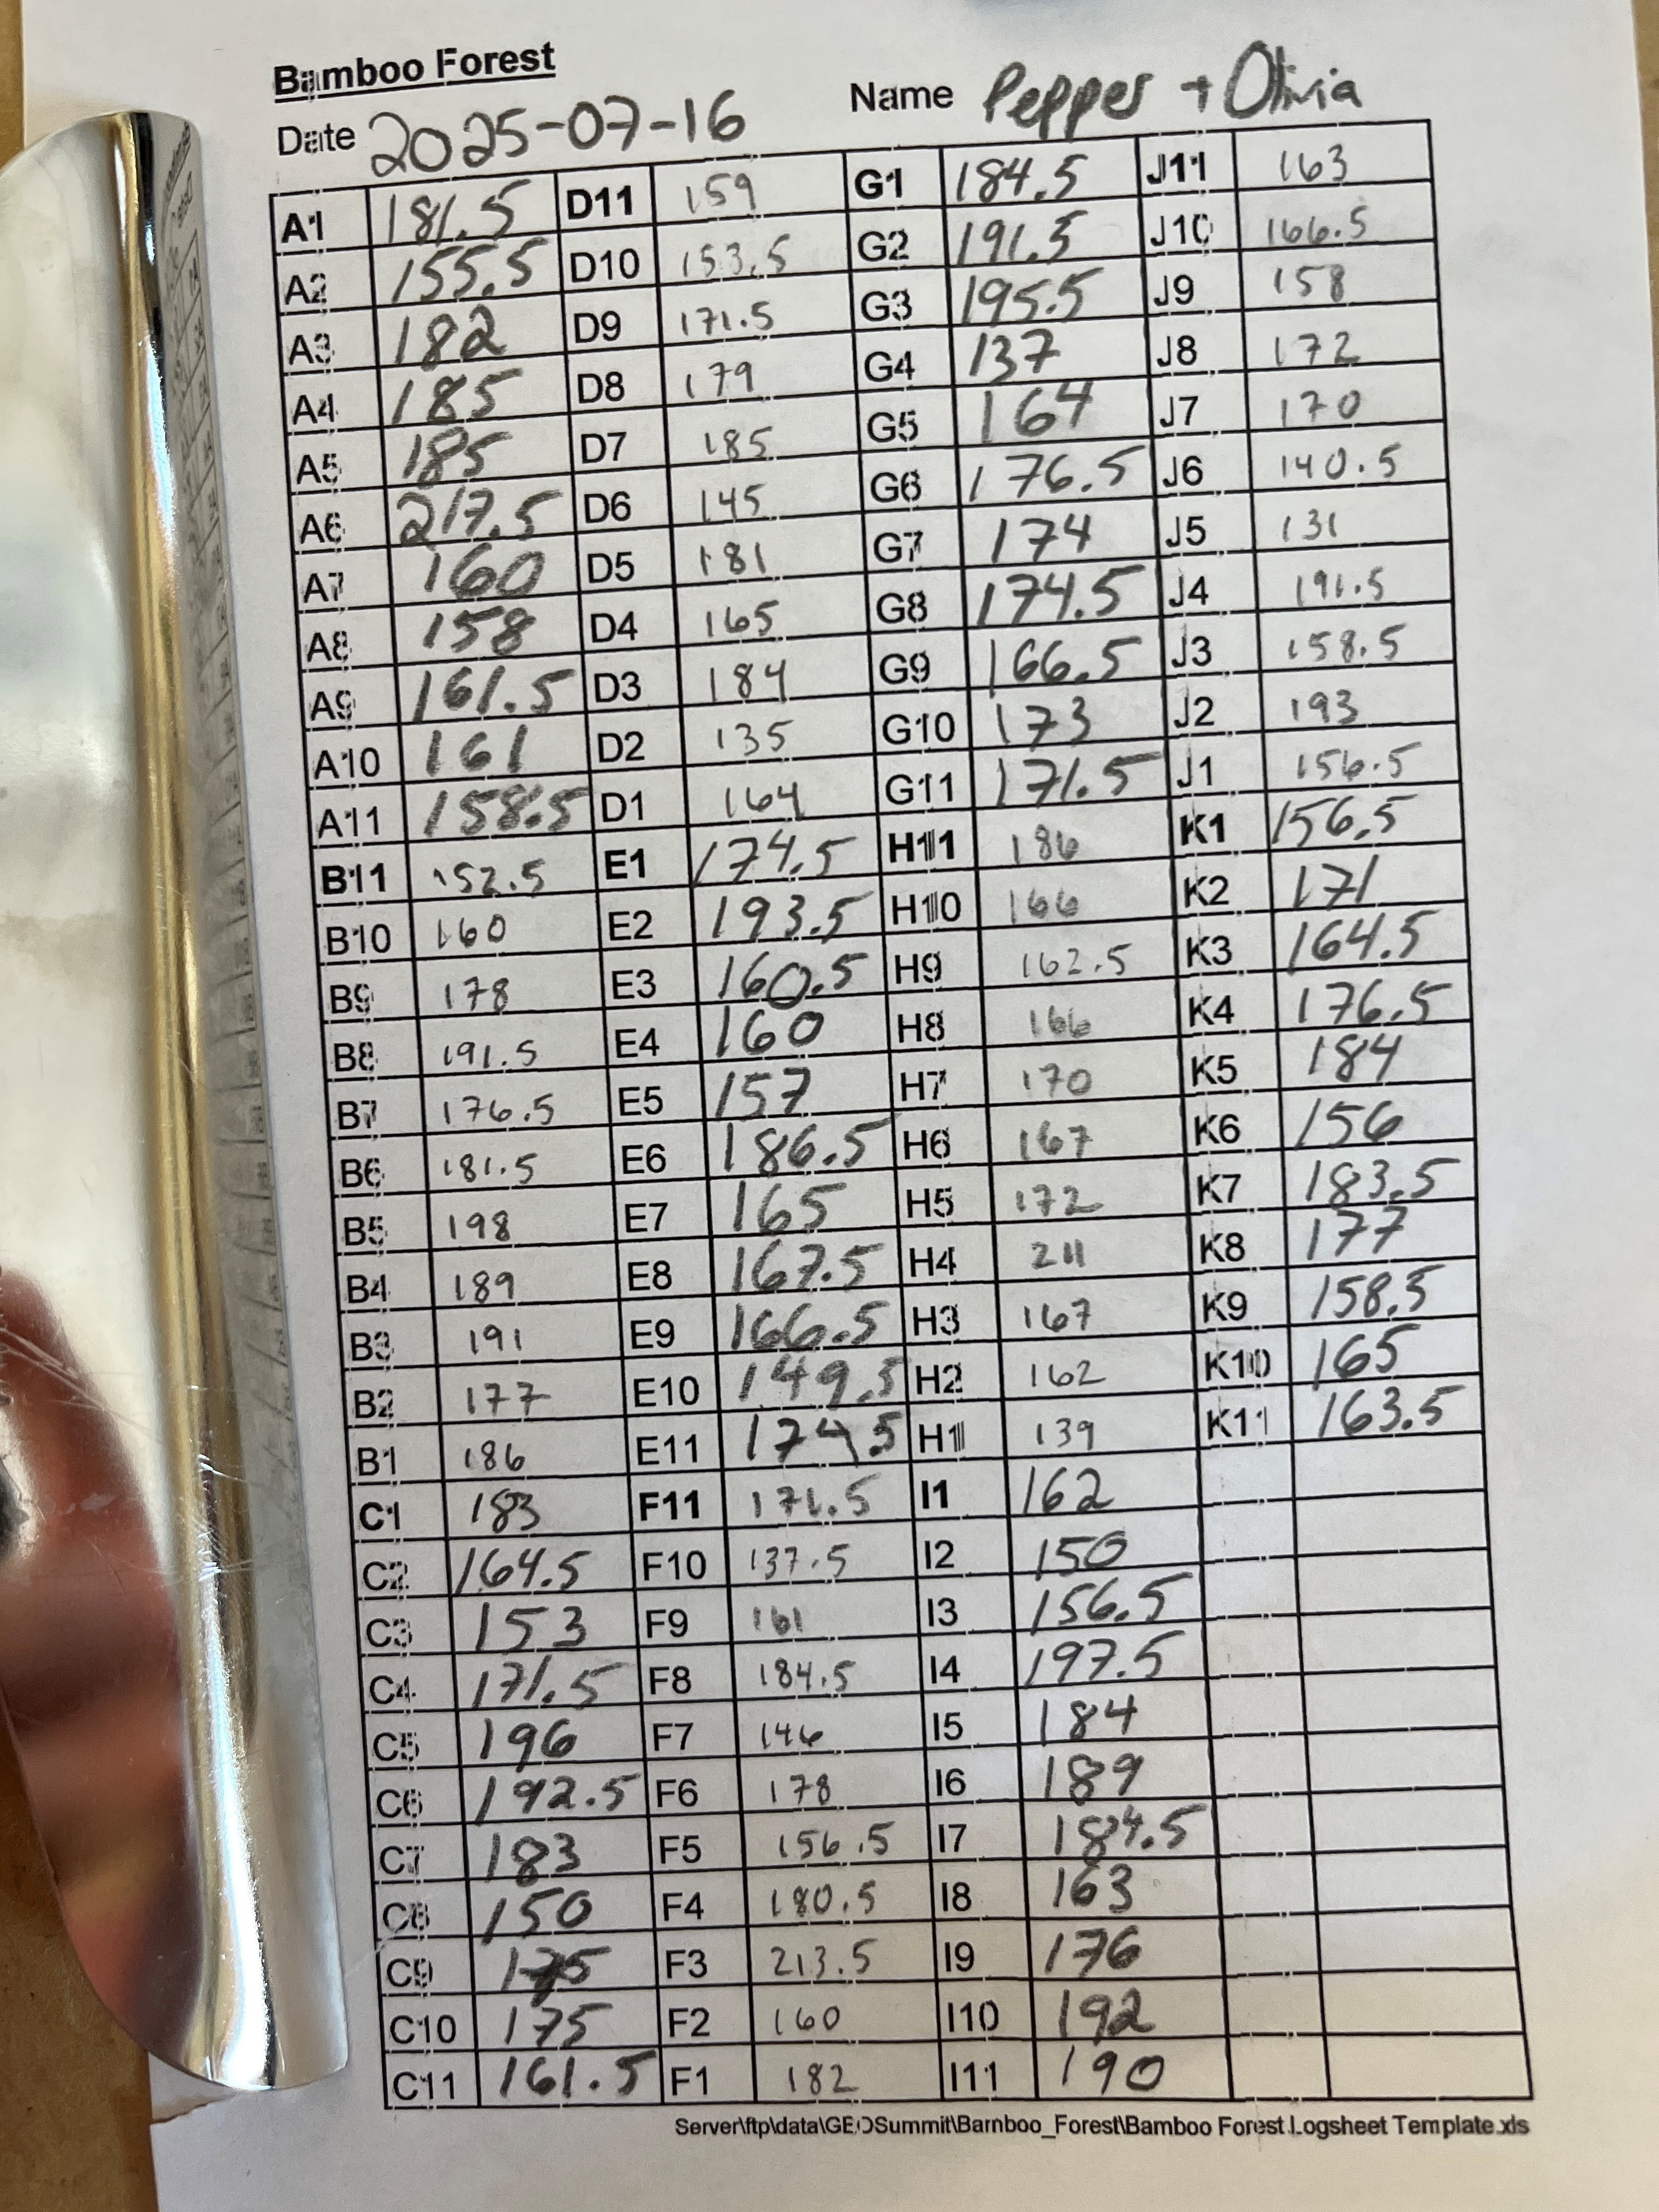 Bamboo Forest
Date 2025-07-16 Name Pepper + Olivia
A1 181.5 D11 159 G1 184.5 J11 163
A2 155.5 D10 153.5 G2 191.5 J10 166.5
A3 182 D9 171.5 G3 195.5 J9 158
A4 185 D8 179 G4 137 J8 172
A5 185 D7 185 G5 164 J7 170
A6 217.5 D6 145 G6 176.5 J6 140.5
A7 160 D5 181 G7 174 J5 131
A8 158 D4 165 G8 174.5 J4 191.5
A9 161.5 D3 184 G9 166.5 J3 158.5
A10 161 D2 135 G10 173 J2 193
A11 158.5 D1 164 G11 171.5 J1 156.5
B11 152.5 E1 174.5 H11 186 K1 156.5
B10 160 E2 193.5 H10 166 K2 171
B9 178 E3 160.5 H9 162.5 K3 164.5
B8 191.5 E4 160 H8 166 K4 176.5
B7 176.5 E5 157 H7 170 K5 184
B6 181.5 E6 186.5 H6 167 K6 156
B5 198 E7 165 H5 172 K7 183.5
B4 189 E8 167.5 H4 211 K8 177
B3 191 E9 166.5 H3 167 K9 158.5
B2 177 E10 149.5 H2 162 K10 165
B1 186 E11 174.5 H1 139 K11 163.5
C1 183 F11 171.5 I1 162
C2 164.5 F10 137.5 I2 150
C3 153 F9 161 I3 156.5
C4 171.5 F8 184.5 I4 197.5
C5 196 F7 146 I5 184
C6 192.5 F6 178 I6 189
C7 183 F5 156.5 I7 184.5
C8 150 F4 180.5 I8 163
C9 175 F3 213.5 I9 176
C10 175 F2 160 I10 192
C11 161.5 F1 182 I11 190
Server\ftp\data\GEOSummit\Bamboo_Forest\Bamboo Forest Logsheet Template.xls